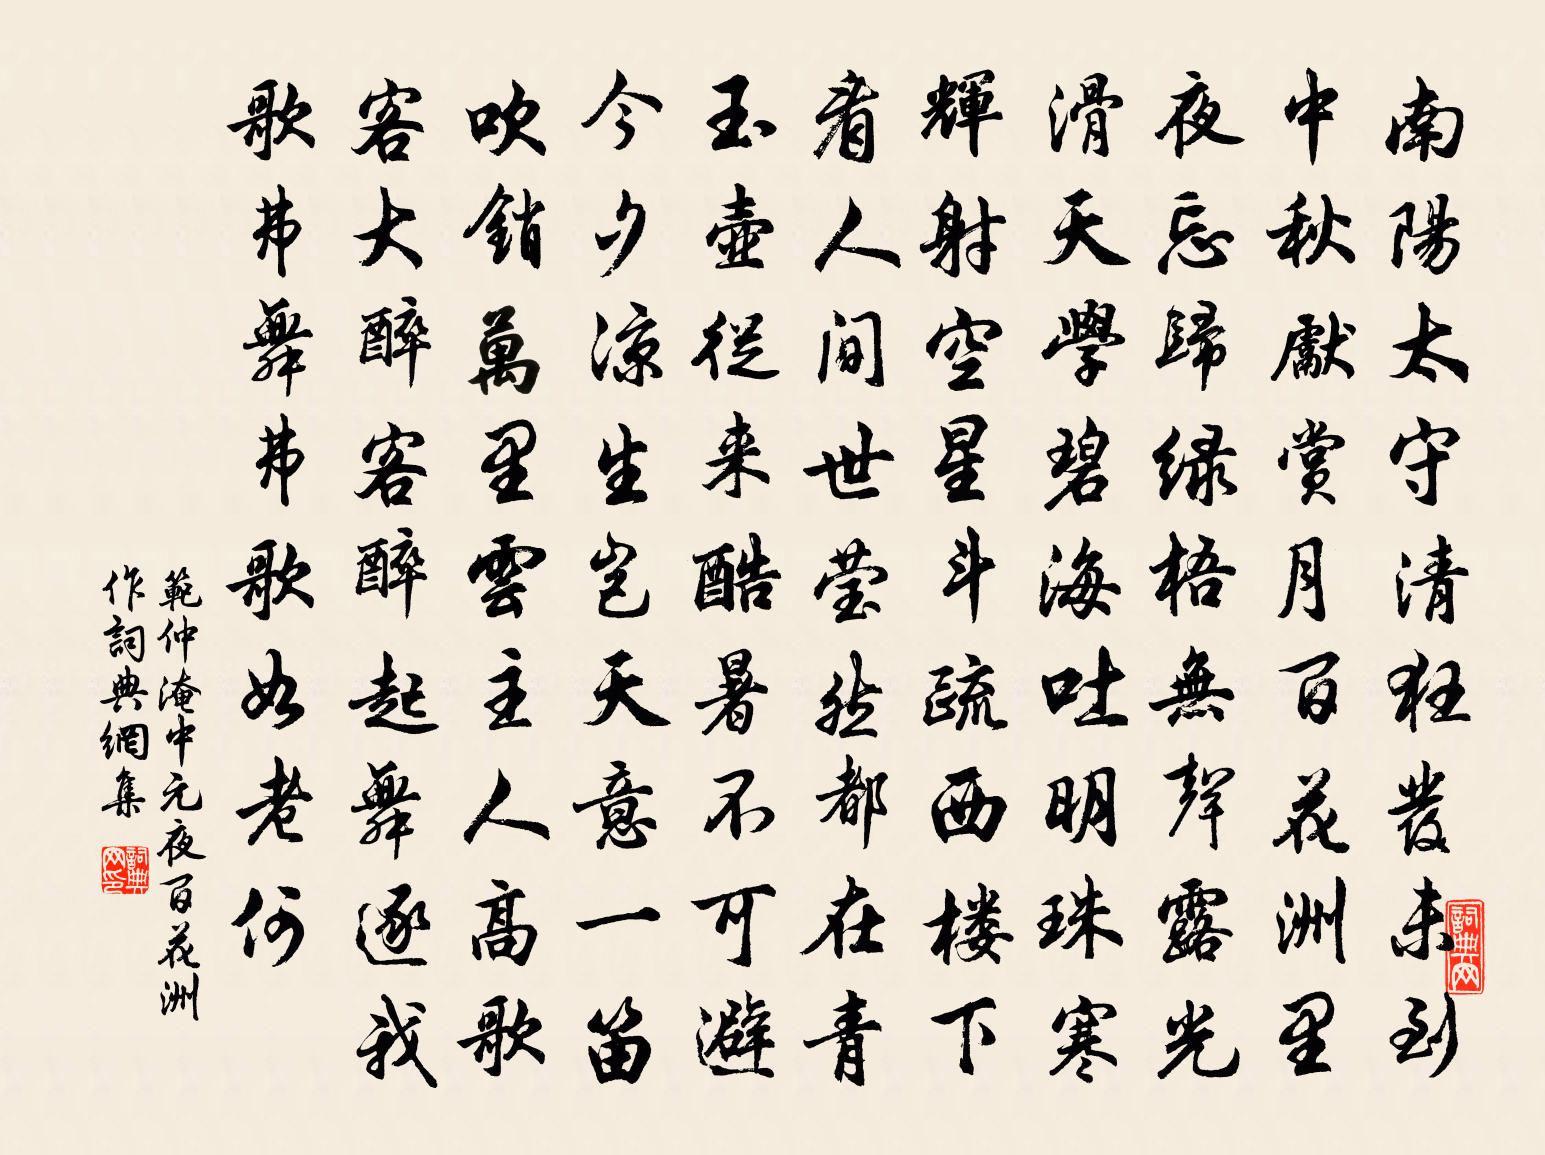 南陽太守清狂發未到
中秋獻賞月百花洲里
夜忘歸綠梧無聲露光
滑天學碧海吐明珠寒
輝射空星斗疏西楼下
看人間世莹然都在青
玉壺從来酷暑不可避
今夕涼生岂天意一笛
吹銷萬里雲主人高歌
客大醉客醉起舞逐我
歌弗舞弗歌如老何
範仲淹中元夜百花洲
作詞典網集
詞典网印
詞典网